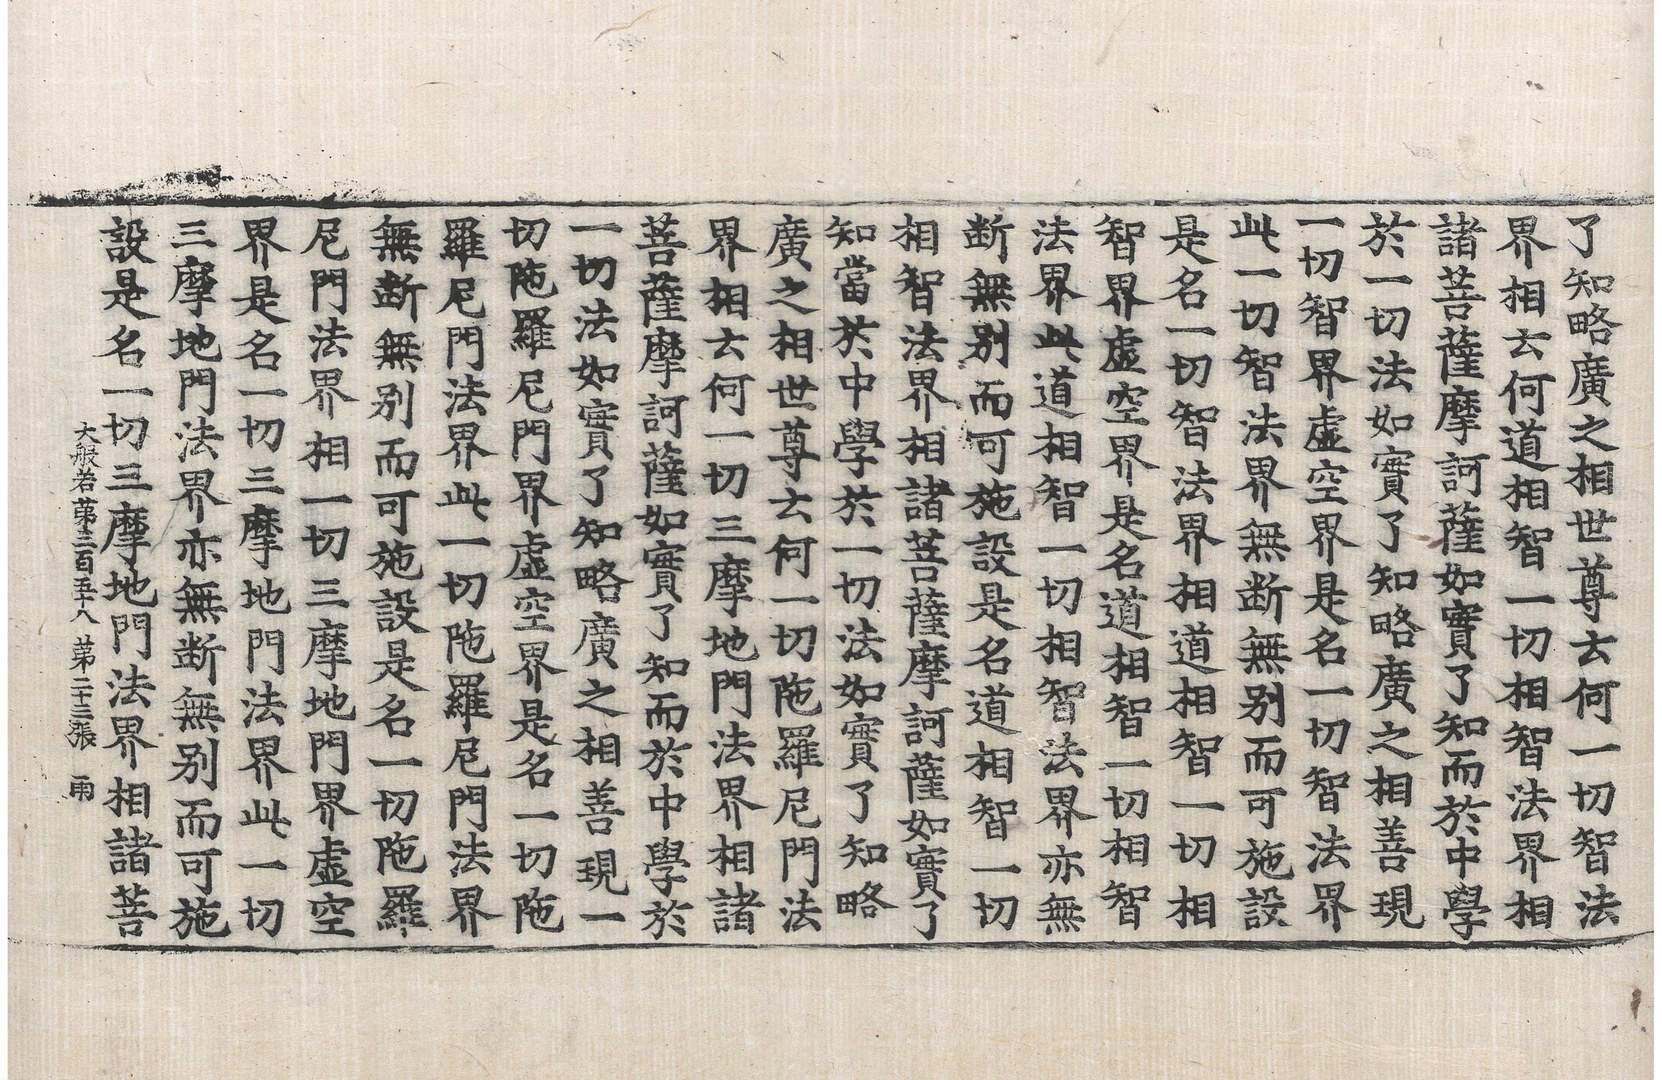 了知略廣之相世尊云何一切智法
界相云何道相智一切相智法界相
諸菩薩摩訶薩如實了知而於中學
於一切法如實了知略廣之相善現
一切智界虛空界是名一切智法界
此一切智法界無断無别而可施設
是名一切智法界相道相智一切相
智界虛空界是名道相智一切相智
法界此道相智一切相智法界亦無
断無别而可施設是名道相智一切
相智法界相諸菩薩摩訶薩如實了
知當於中學於一切法如實了知略
廣之相世尊云何一切陁羅尼門法
界相云何一切三摩地門法界相諸
菩薩摩訶薩如實了知而於中學於
一切法如實了知略廣之相善現一
切陁羅尼門界虛空界是名一切陁
羅尼門法界此一切陁羅尼門法界
無断無别而可施設是名一切陁羅
尼門法界相一切三摩地門界虛空
界是名一切三摩地門法界此一切
三摩地門法界亦無断無别而可施
設是名一切三摩地門法界相諸菩
大般若第三百五十八 第二十三張 雨